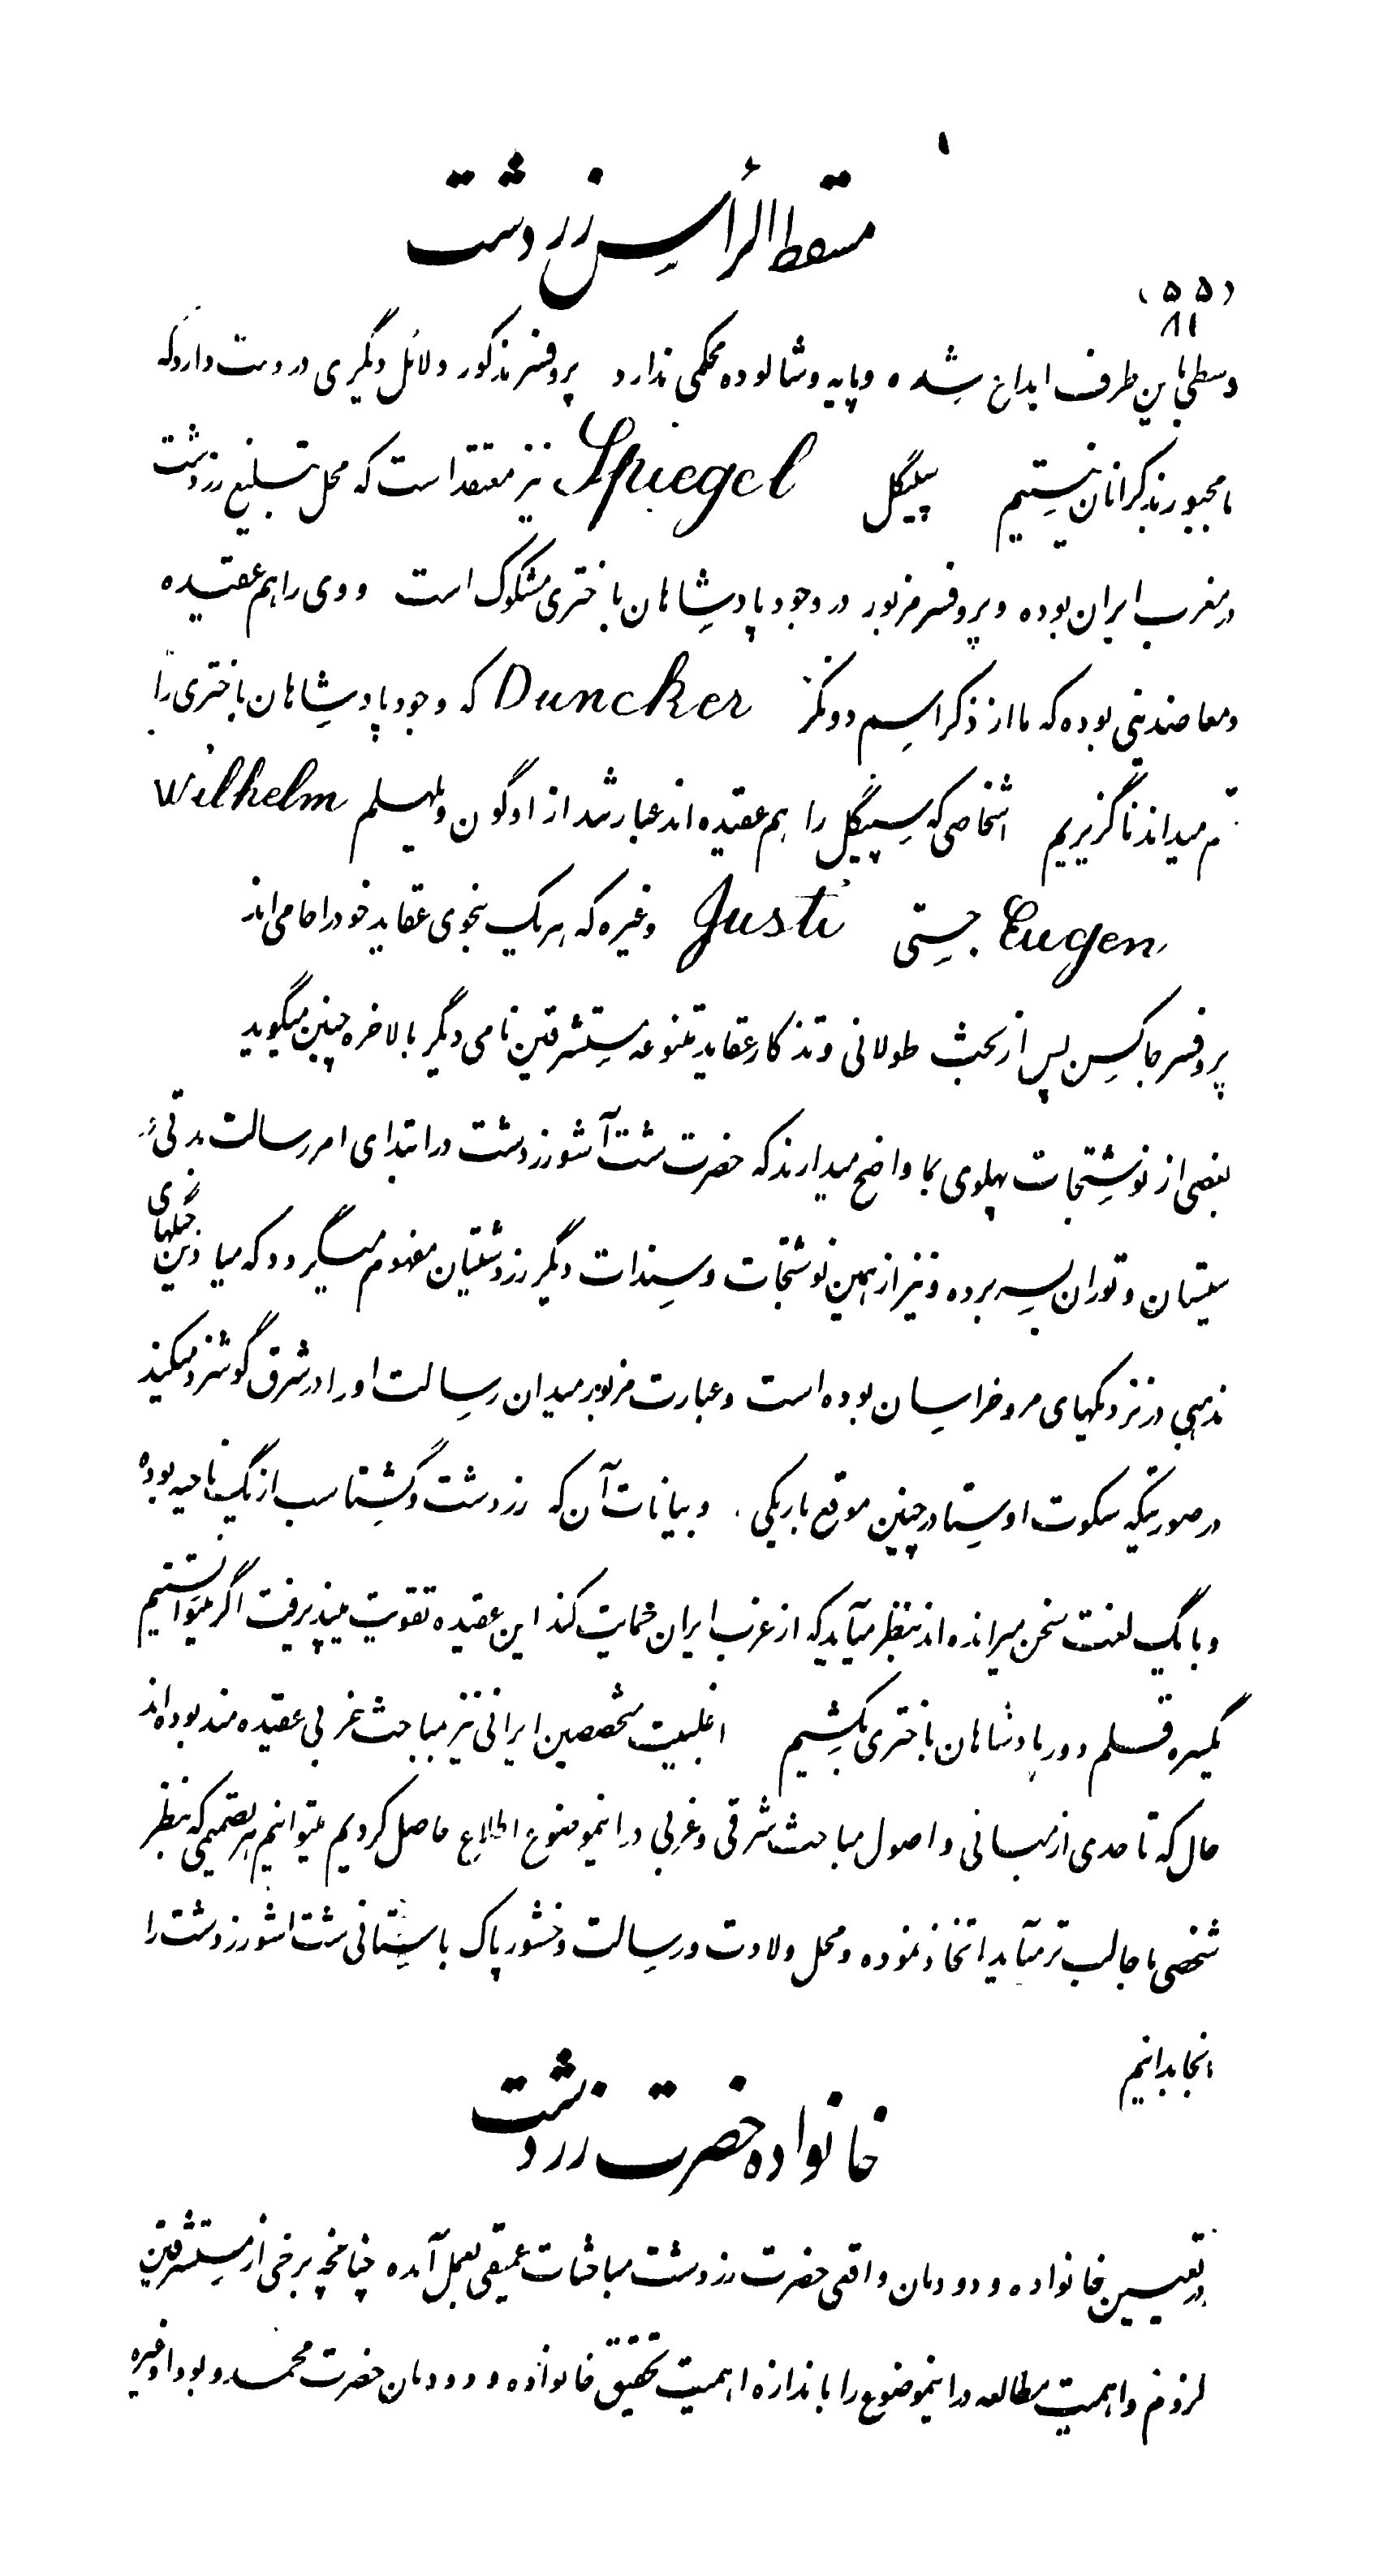 مسقط الرأس زردشت
(۵۵)
۸۱
وسطی باین طرف ابداع شده و پایه و شالوده محکمی ندارد پروفسر مذکور دلائل دیگری در دست دارد که
ما مجبور بذکر آنان نیستیم سپیگل Spiegel نیز معتقد است که محل تبلیغ زردشت
در مغرب ایران بوده و پروفسر مزبور در وجود پادشاهان باختری مشکوک است و وی را هم عقیده
ومعاضدینی بوده که ما از ذکر اسم دونکر Duncker که وجود پادشاهان باختری را
میداند ناگزیریم اشخاصی که سپیگل را هم عقیده اند عبارتند از اوگون ویلهلم Wilhelm
Eugen جستی Justi وغیره که هر یک بنحوی عقاید خود را حامی اند
پروفسر جاکسن پس از بحث طولانی و تذکار عقاید متنوعه مستشرقین نامی دیگر بالاخره چنین میگوید
بعضی از نوشتجات پهلوی بما واضح میدارند که حضرت شت آشو زردشت در ابتدای امر رسالت مدتی در
سیستان و توران بسر برده و نیز از همین نوشتجات و سندات دیگر زردشتیان مفهوم میگردد که میادین جنگهای
مذهبی در نزدیکهای مرو خراسان بوده است و عبارت مزبور میدان رسالت او را در شرق گوشزد میکند
در صورتیکه سکوت اوستا در چنین موقع باریکی . و بیانات آن که زردشت و گشتاسب از یک ناحیه بوده
و با یک لغت سخن میرانده اند بنظر میآید که از غرب ایران حمایت کند این عقیده تقویت میپذیرفت اگر میتوانستیم
یکسره قلم در پادشاهان باختری بکشیم اغلبیت متخصصین ایرانی نیز بمباحث غربی عقیده مند بوده اند
حال که تا حدی از مبانی و اصول مباحث شرقی و غربی در اینموضوع اطلاع حاصل کردیم میتوانیم هر تصمیمی که بنظر
شخصی ما جالب تر میآید اتخاذ نموده و محل ولادت و رسالت وخشور پاک باستانی شت اشو زردشت را
انجا بدانیم
خانواده حضرت زردشت
در تعیین خانواده و دودمان واقعی حضرت زردشت مباحثات عمیقی بعمل آمده چنانچه برخی از مستشرقین
لزوم و اهمیت مطالعه در اینموضوع را باندازه اهمیت تحقیق خانواده و دودمان حضرت محمد و بودا وغیره